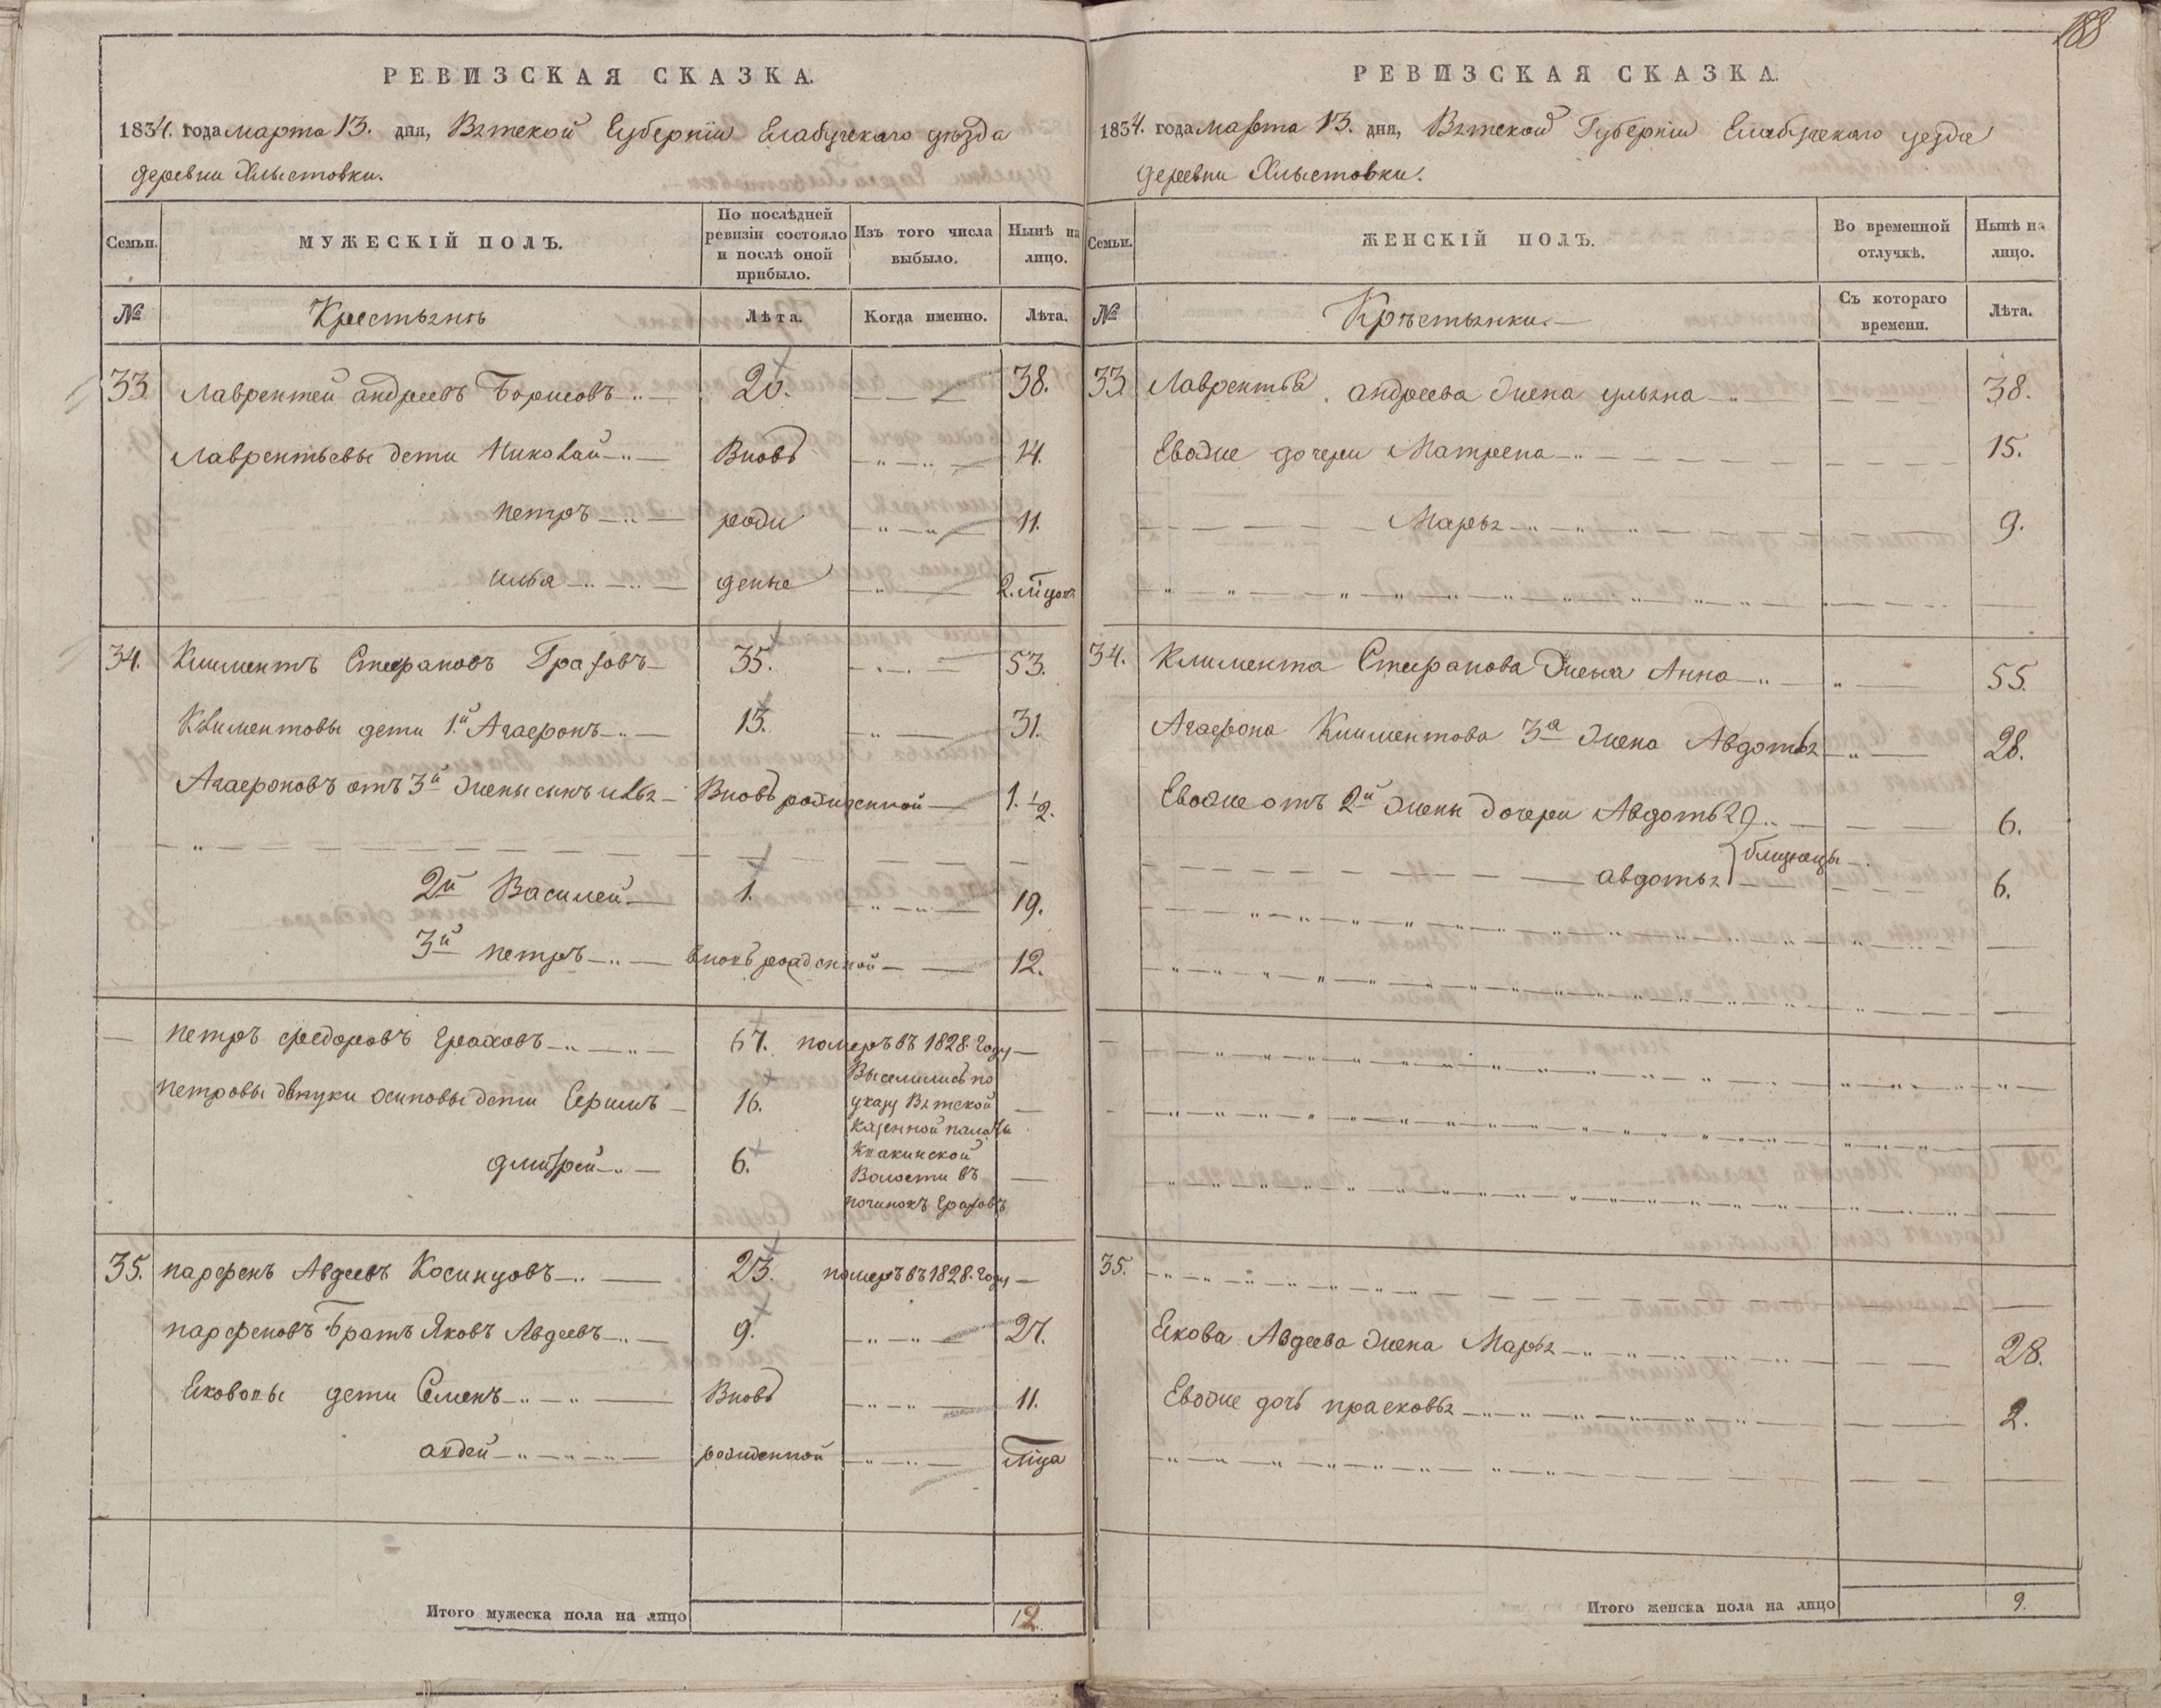 188
РЕВИЗСКАЯ СКАЗКА.
1834. года марта 13. дня, Вятской Губернїи Елабугскаго уѣзда
деревни Хлыстовки.
Семьи.
МУЖЕСКІЙ ПОЛЪ.
По послѣдней ревизіи состояло и послѣ оной прибыло.
Изъ того числа выбыло.
Нынѣ на лицо.
№
Крестьянѣ
Лѣта.
Когда именно.
Лѣта.
33. Лаврентей андреевъ Борисовъ 20. 38.
Лаврентьевы дети Николай Вновь 14.
петръ рожи 11.
илья деные 2. мѣцовъ
34. Климентъ Стефановъ Граховъ 35. 53.
Климентовы дети 1й Агафонъ 13. 31.
Агафоновъ отъ 3й жены сынъ илья Вновь рожденной 1. 1/2.
2й Василей 1. 19.
3й петръ вновь рожденной 12.
петръ федоровъ Граховъ 67. померъ въ 1828. Году
петровы внуки осиповы дети Ефимъ 16. Выселились по
указу Вятской
казенной палаты
дмитрей 6. Кпакинской
Волости въ
починокъ Граховъ
35. парфенъ Авдеевъ Косинцовъ 23. померъ въ 1828. Году
парфеновъ Братъ Яковъ Авдеевъ 9. 27.
Яковоны дети Семенъ Вновь 11.
авдей рожденной мѣца
Итого мужеска пола на лицо 12.
РЕВИЗСКАЯ СКАЗКА.
1834. года марта 13. дня, Вятской Губернїи Елабугскаго уезда
деревни Хлыстовки.
Семьи.
ЖЕНСКІЙ ПОЛЪ.
Во временной отлучкѣ.
Нынѣ на лицо.
№
Крѣстьянки.
Съ котораго времени.
Лѣта.
33. Лаврентья андреева жена ульяна 38.
Евожие дочери Матрена 15.
Марья 9.
34. Климента Стефанова жена Анна 55.
Агафона Климентова 3а жена Авдотья 28.
Евожие отъ 2й жены дочери Авдотья 6.
близнецы
авдотья 6.
35.
Якова Авдеева жена Марья 28.
Евожие дочь прасковья 2.
Итого женска пола на лицо 9.